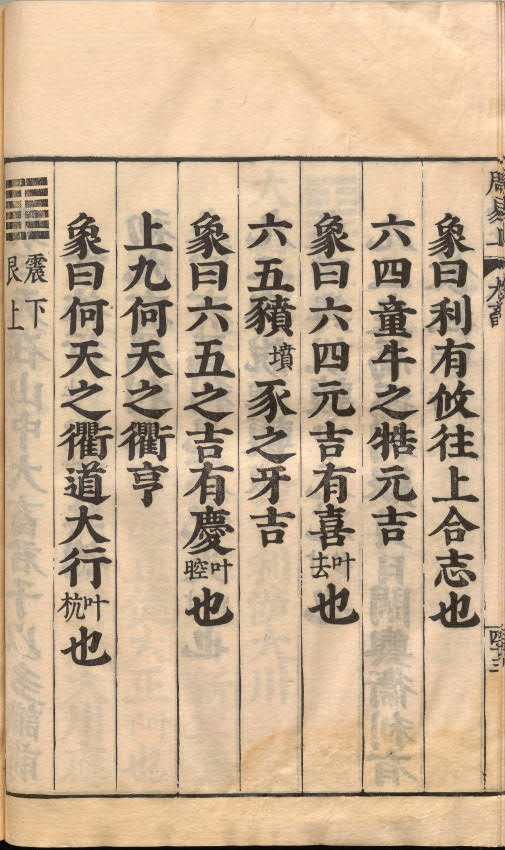 象曰利有攸往上合志也
六四童牛之牿元吉
象曰六四元吉有喜叶去也
六五豶墳豕之牙吉
象曰六五之吉有慶叶腔也
上九何天之衢亨
象曰何天之衢道大行叶杭也
震下
艮上